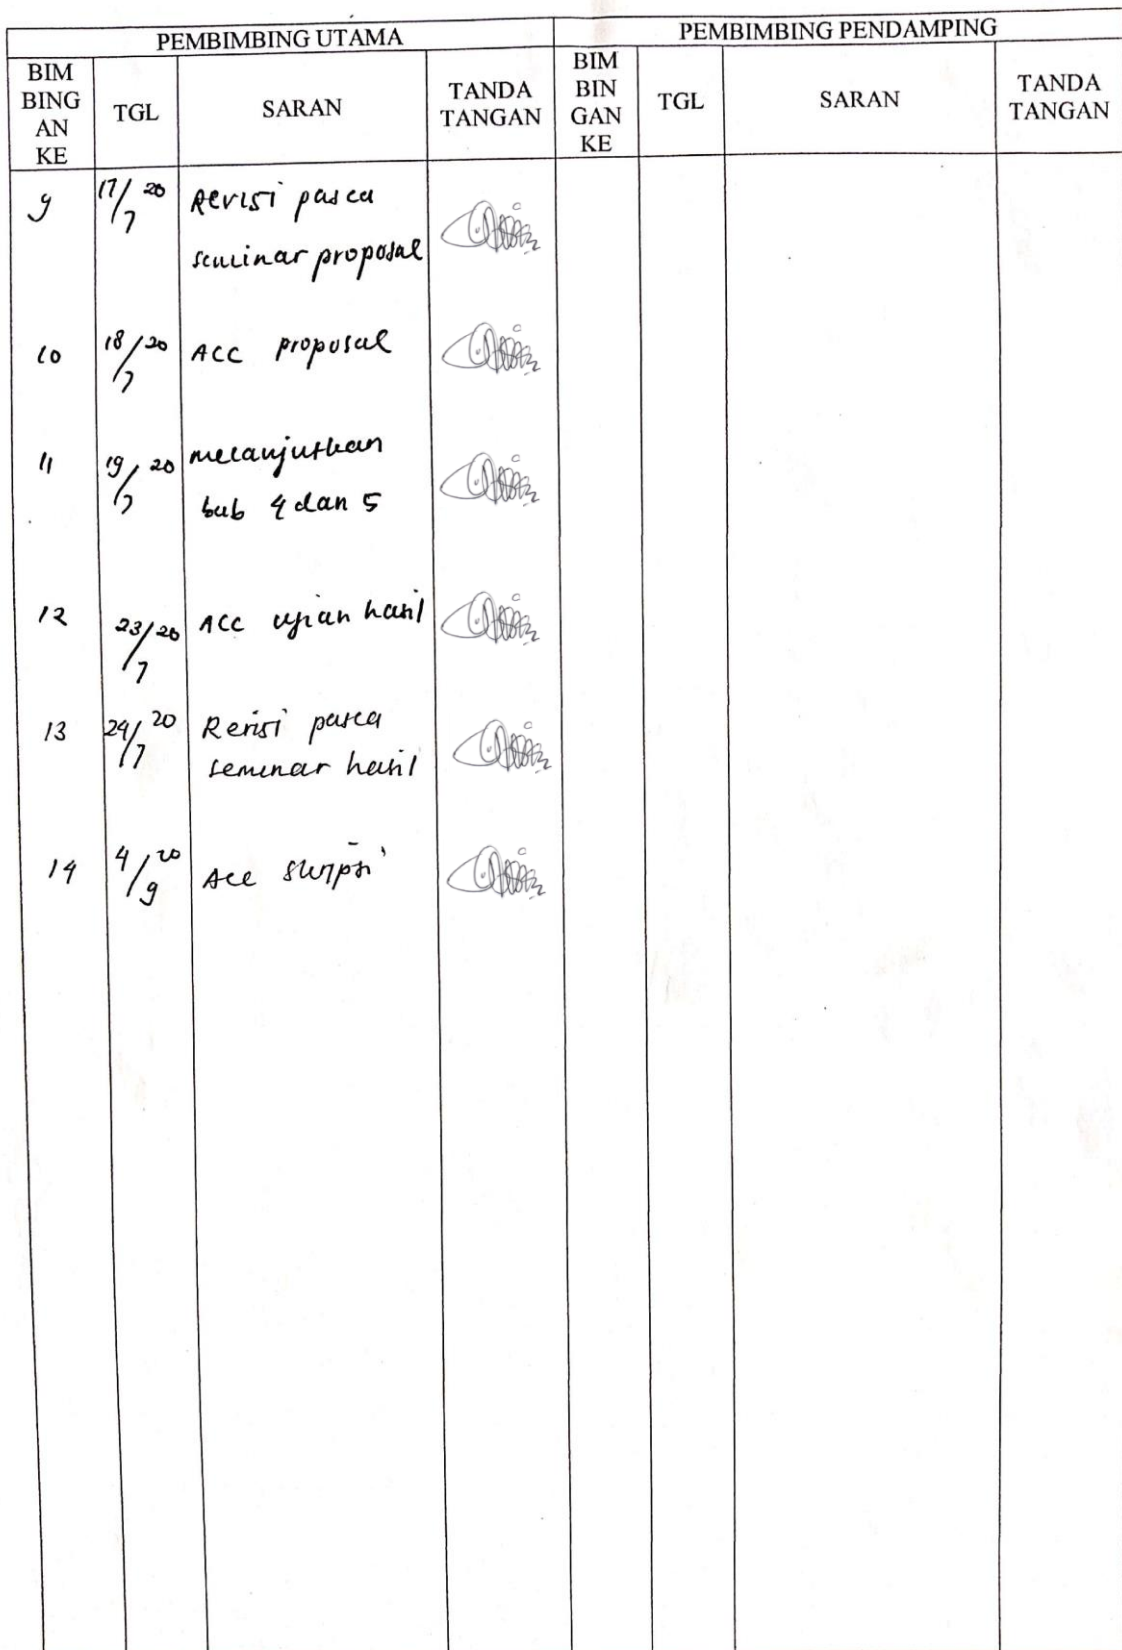 PEMBIMBING UTAMA
PEMBIMBING PENDAMPING
BIM
BING
AN
KE
TGL
SARAN
TANDA
TANGAN
BIM
BIN
GAN
KE
TGL
SARAN
TANDA
TANGAN
9
17/7 20
Revisi pasca
seminar proposal
10
18/7 20
ACC proposal
11
19/7 20
melanjutkan
bab 4 dan 5
12
23/7 20
ACC ujian hasil
13
24/7 20
Revisi pasca
seminar hasil
14
4/9 20
Acc skripsi